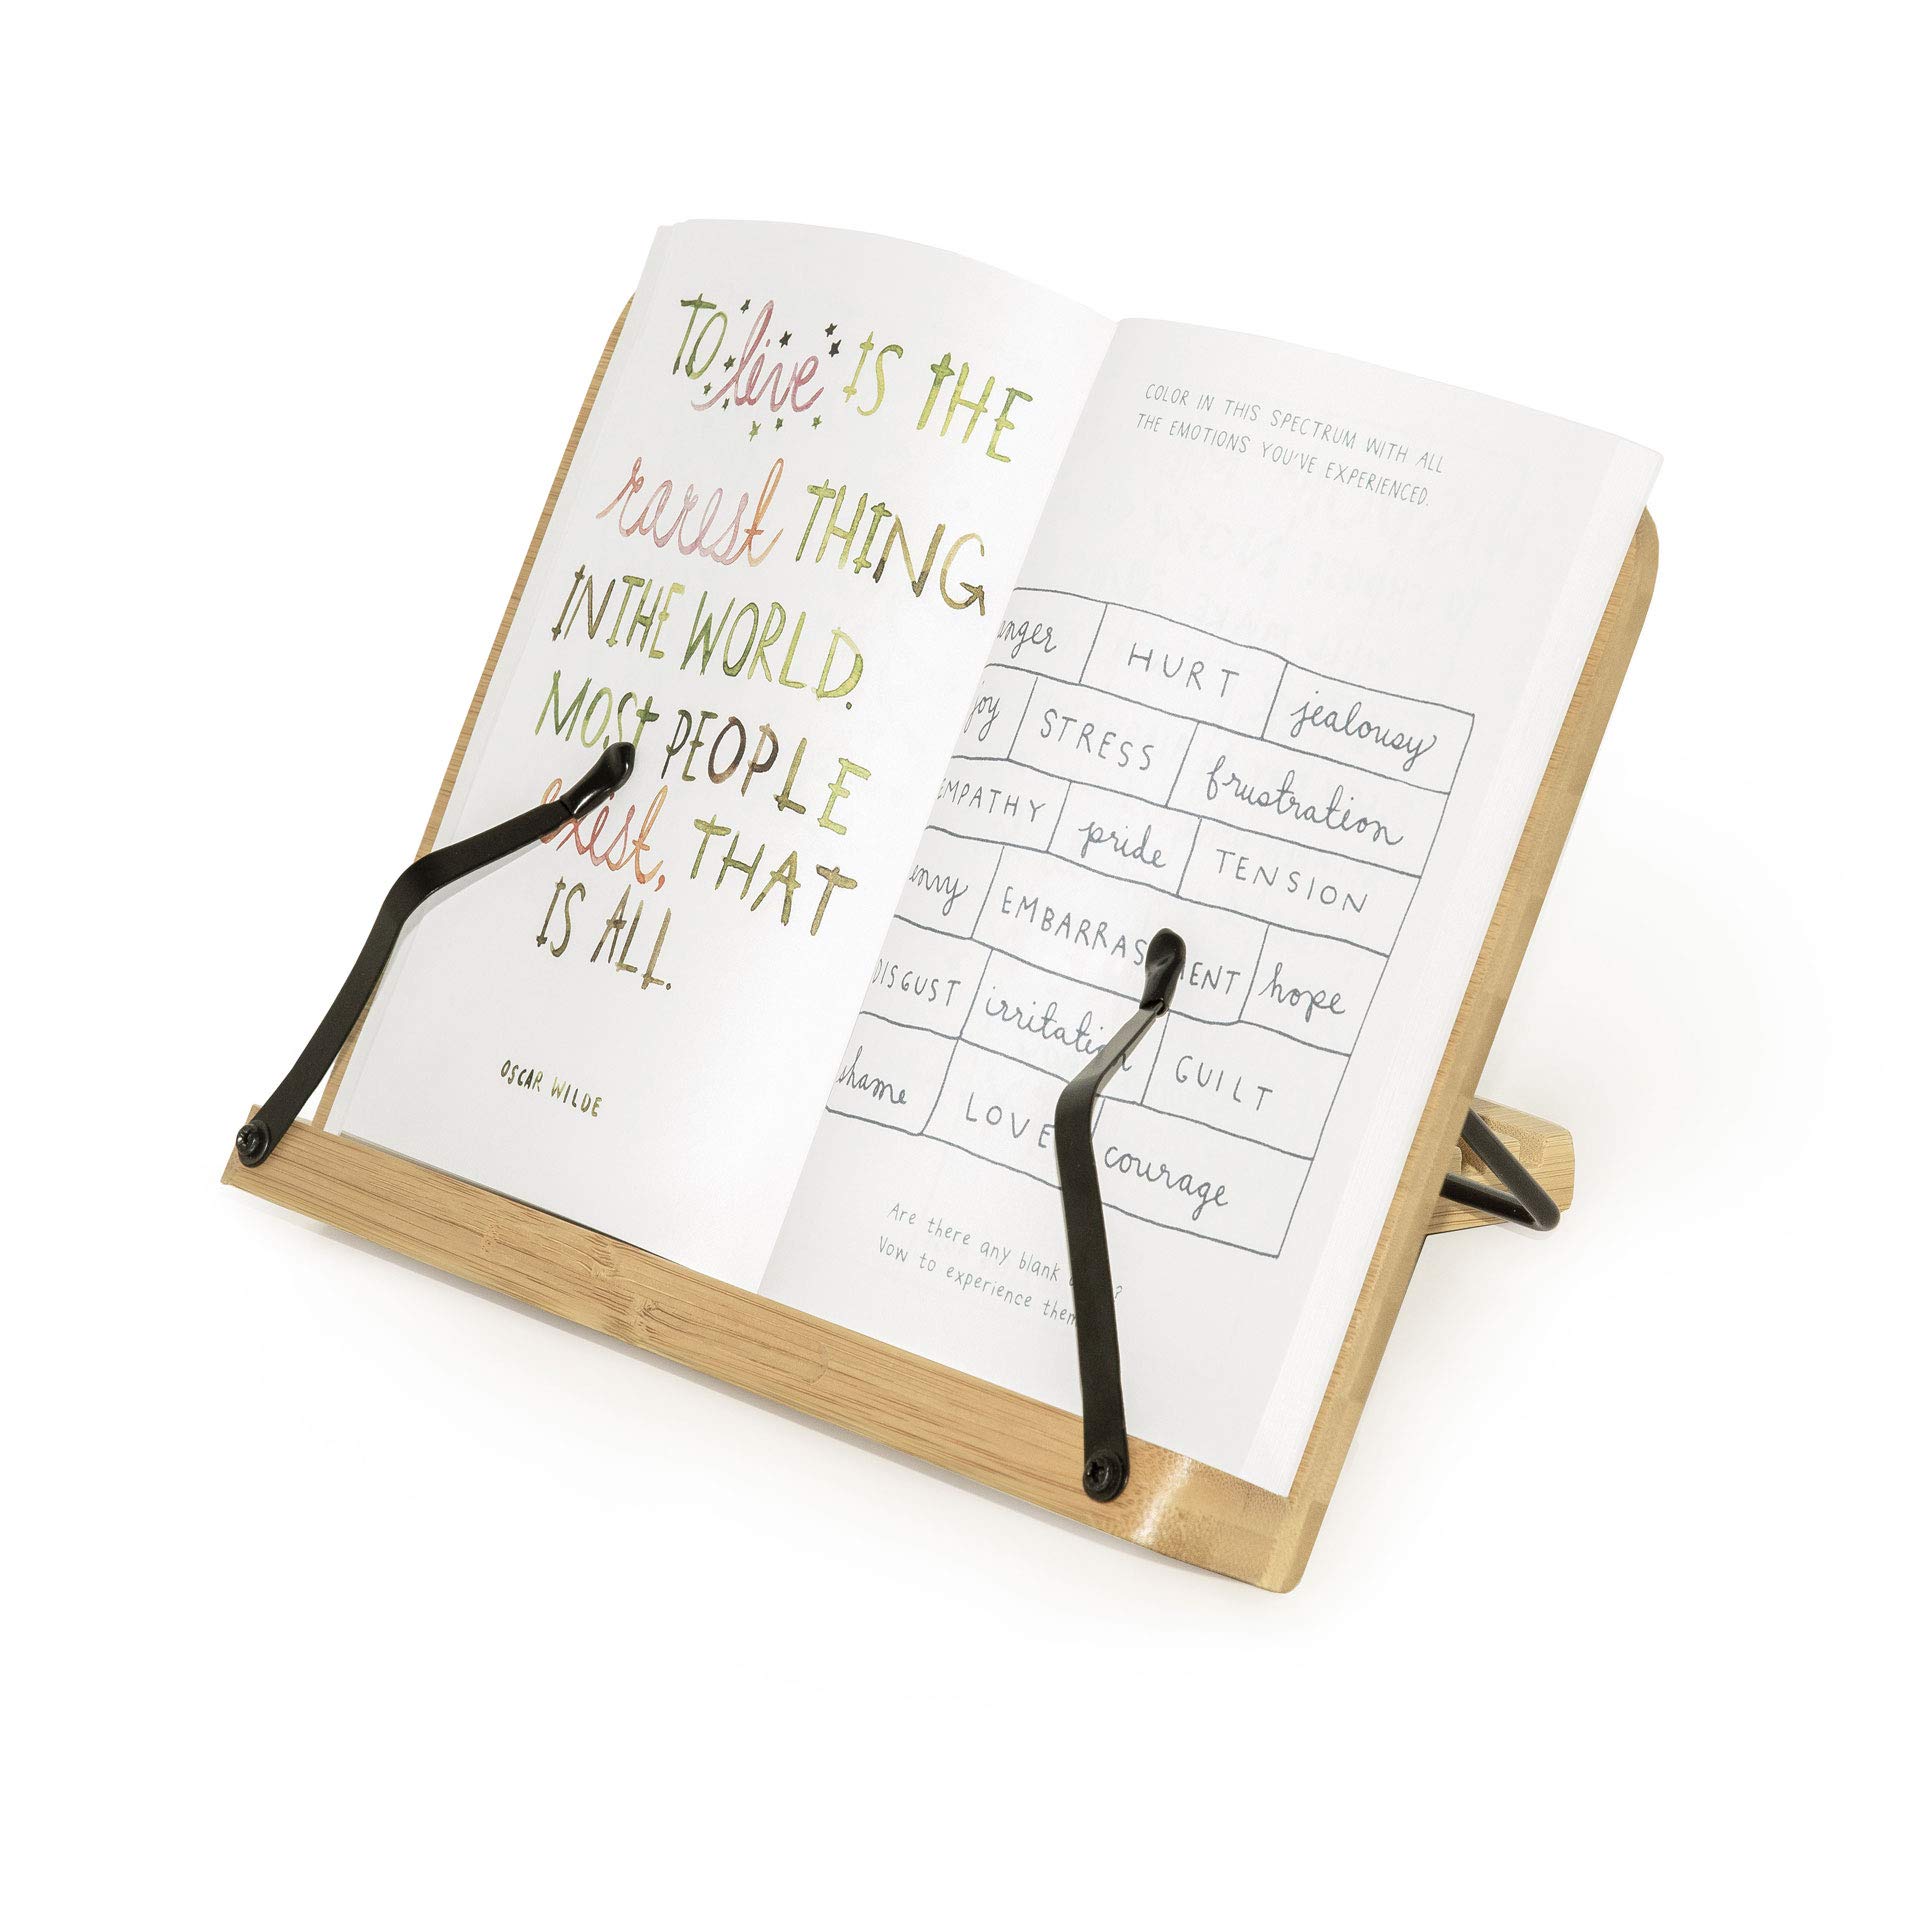 TO live IS THE
rarest THING
IN THE WORLD.
MOST PEOPLE
exist, THAT
IS ALL.
OSCAR WILDE
COLOR IN THIS SPECTRUM WITH ALL
THE EMOTIONS YOU'VE EXPERIENCED.
anger HURT jealousy
joy STRESS frustration
EMPATHY pride TENSION
envy EMBARRASMENT hope
DISGUST irritation GUILT
shame LOVE courage
Are there any blank ?
Vow to experience them